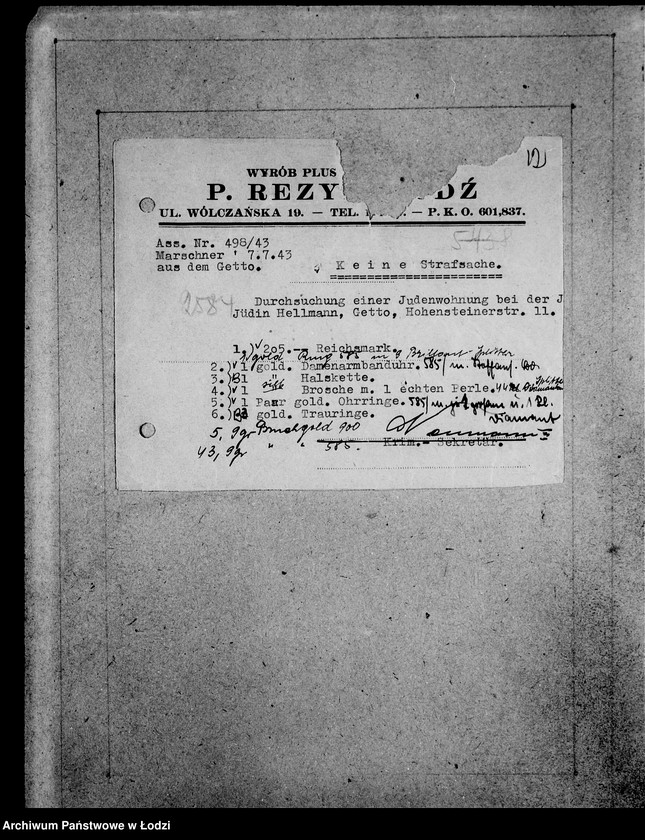 WYRÓB PLUS
P. REZY DŹ
UL. WÓLCZAŃSKA 19. — TEL. — P. K. O. 601,837.
Ass. Nr. 498/43
Marschner 7.7.43
aus dem Getto.
Keine Strafsache.
2584
Durchsuchung einer Judenwohnung bei der J
Jüdin Hellmann, Getto, Hohensteinerstr. 11.
1.) 205.-- Reichsmark.
gold Ring 585 m 9 Brillant
2.) 1 gold. Damenarmbanduhr. 585/ m.
3.) 1 " Halskette.
4.) 1 Brosche m. 1 echten Perle.
5.) 1 Paar gold. Ohrringe. 585/ m. u. 1
Diamant
6.) gold. Trauringe.
5,9 gr Bruchgold 900
43,9 gr " " 585.
Naumann
Krim.- Sekretär.
Archiwum Państwowe w Łodzi